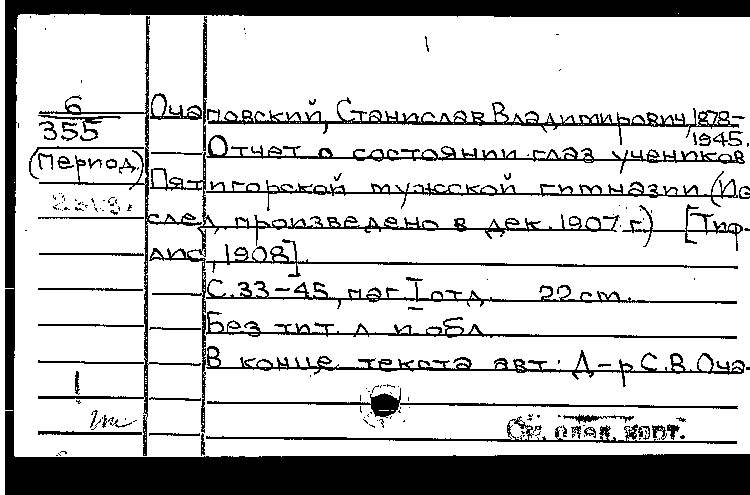 6
355
(период)
Очаповский, Станислав Владимирович, 1878-
1945.
Отчет о состоянии глаз учеников
Пятигорской мужской гимназии (Ис-
след. произведено в дек. 1907 г.) [Тиф-
лис, 1908].
С. 33-45, паг. I отд. 22 cm.
Без тит. л. и обл.
В конце текста авт.: Д-р С.В. Оча-
См. след. карт.